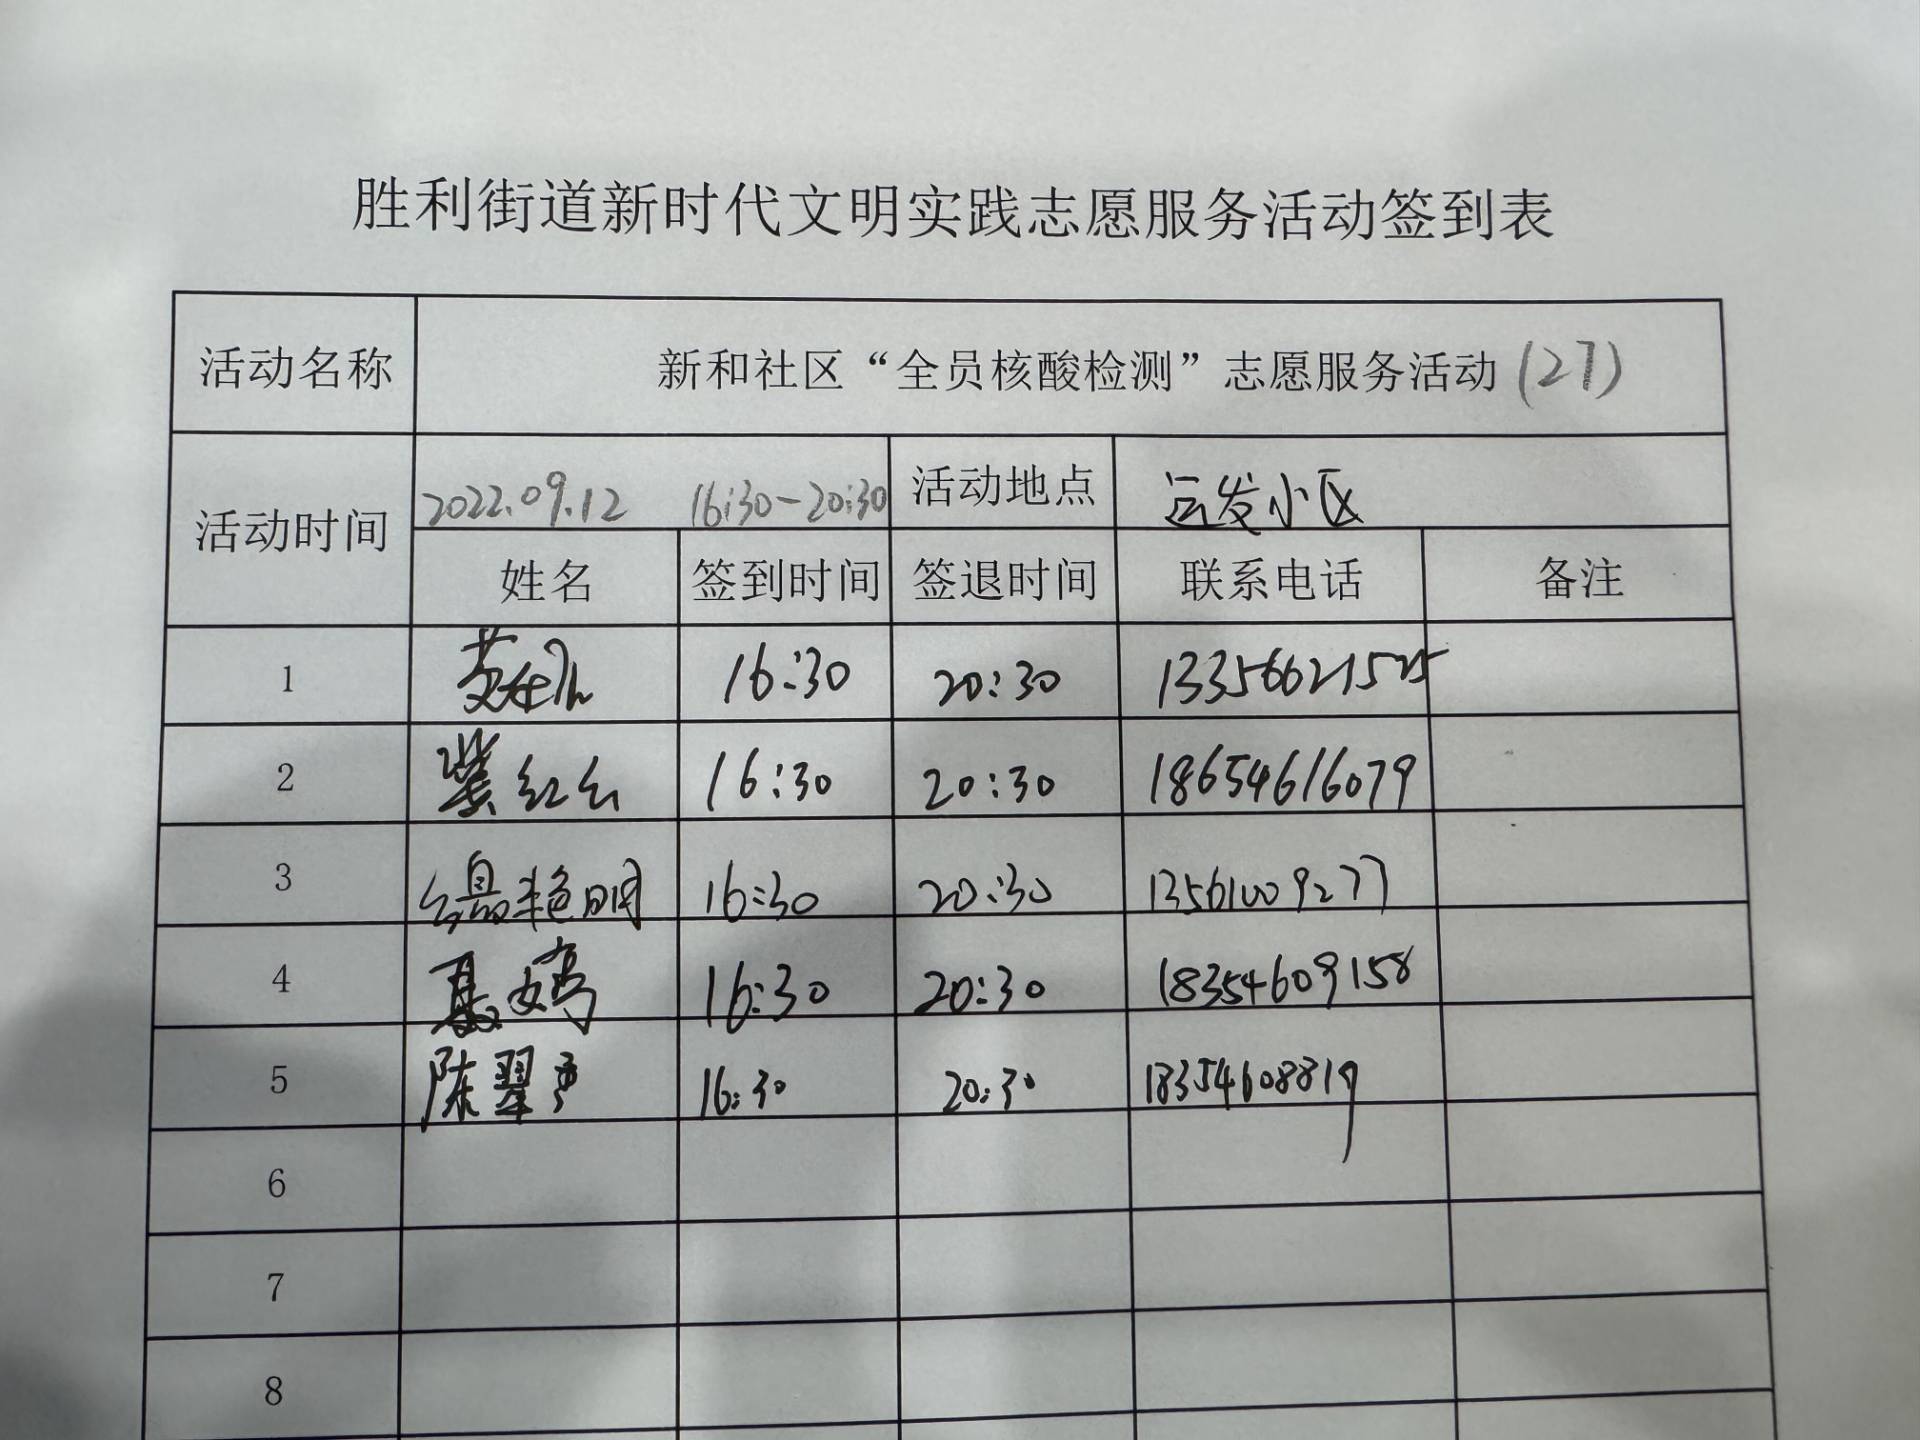 胜利街道新时代文明实践志愿服务活动签到表
活动名称 新和社区“全员核酸检测”志愿服务活动(27)
活动时间 2022.09.12 16:30-20:30 活动地点 运发小区
姓名 签到时间 签退时间 联系电话 备注
1 16:30 20:30 13356621525
2 红 16:30 20:30 18654616079
3 艳明 16:30 20:30 13561009277
4 聂婷 16:30 20:30 18354609158
5 陈翠 16:30 20:30 18354608819
6
7
8